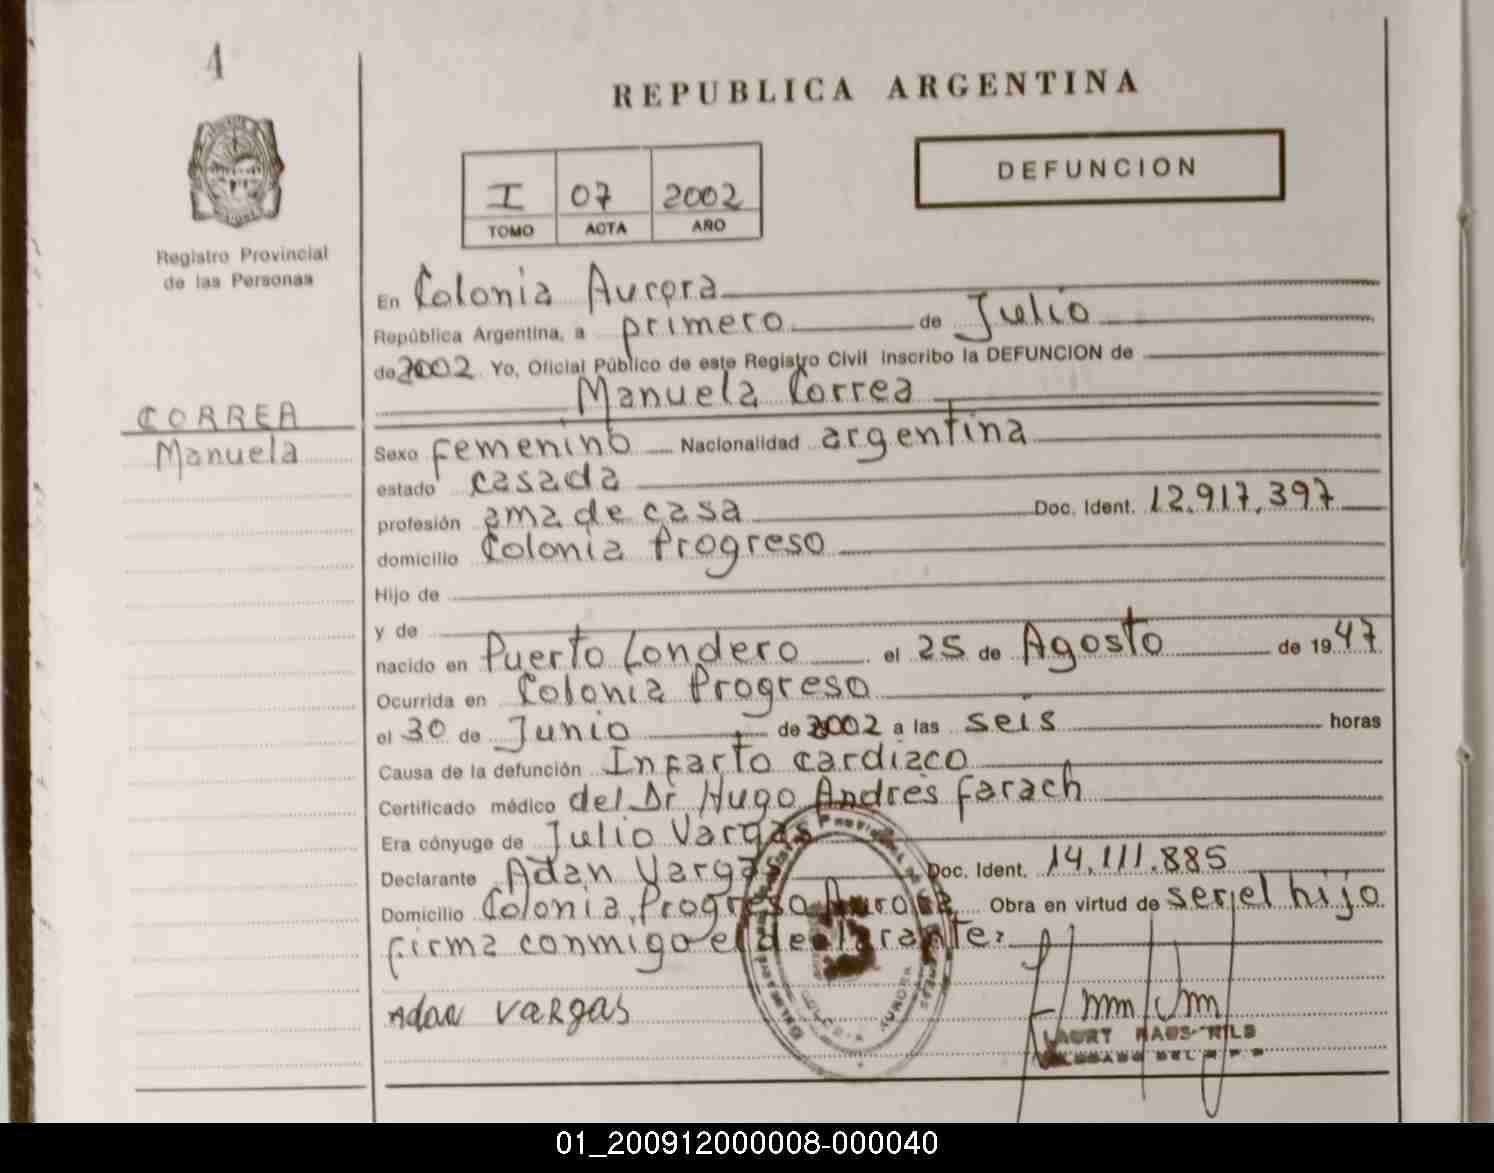 4
REPUBLICA ARGENTINA
DEFUNCION
I 07 2002
TOMO ACTA AÑO
Registro Provincial
de las Personas
CORREA
Manuela
En Colonia Aurora
República Argentina, a primero de Julio
de 2002 Yo, Oficial Público de este Registro Civil inscribo la DEFUNCION de
Manuela Correa
Sexo femenino Nacionalidad argentina
estado casada
profesión ama de casa Doc. Ident. 12.917.397
domicilio Colonia Progreso
Hijo de
y de
nacido en Puerto Londero el 25 de Agosto de 1947
Ocurrida en Colonia Progreso
el 30 de Junio de 2002 a las seis horas
Causa de la defunción Infarto cardiaco
Certificado médico del Dr Hugo Andrés Farach
Era cónyuge de Julio Vargas
Declarante Adán Vargas Doc. Ident. 14.111.885
Domicilio Colonia Progreso Aurora Obra en virtud de ser el hijo
firma conmigo el declarante.
Adan Vargas
01_200912000008-000040